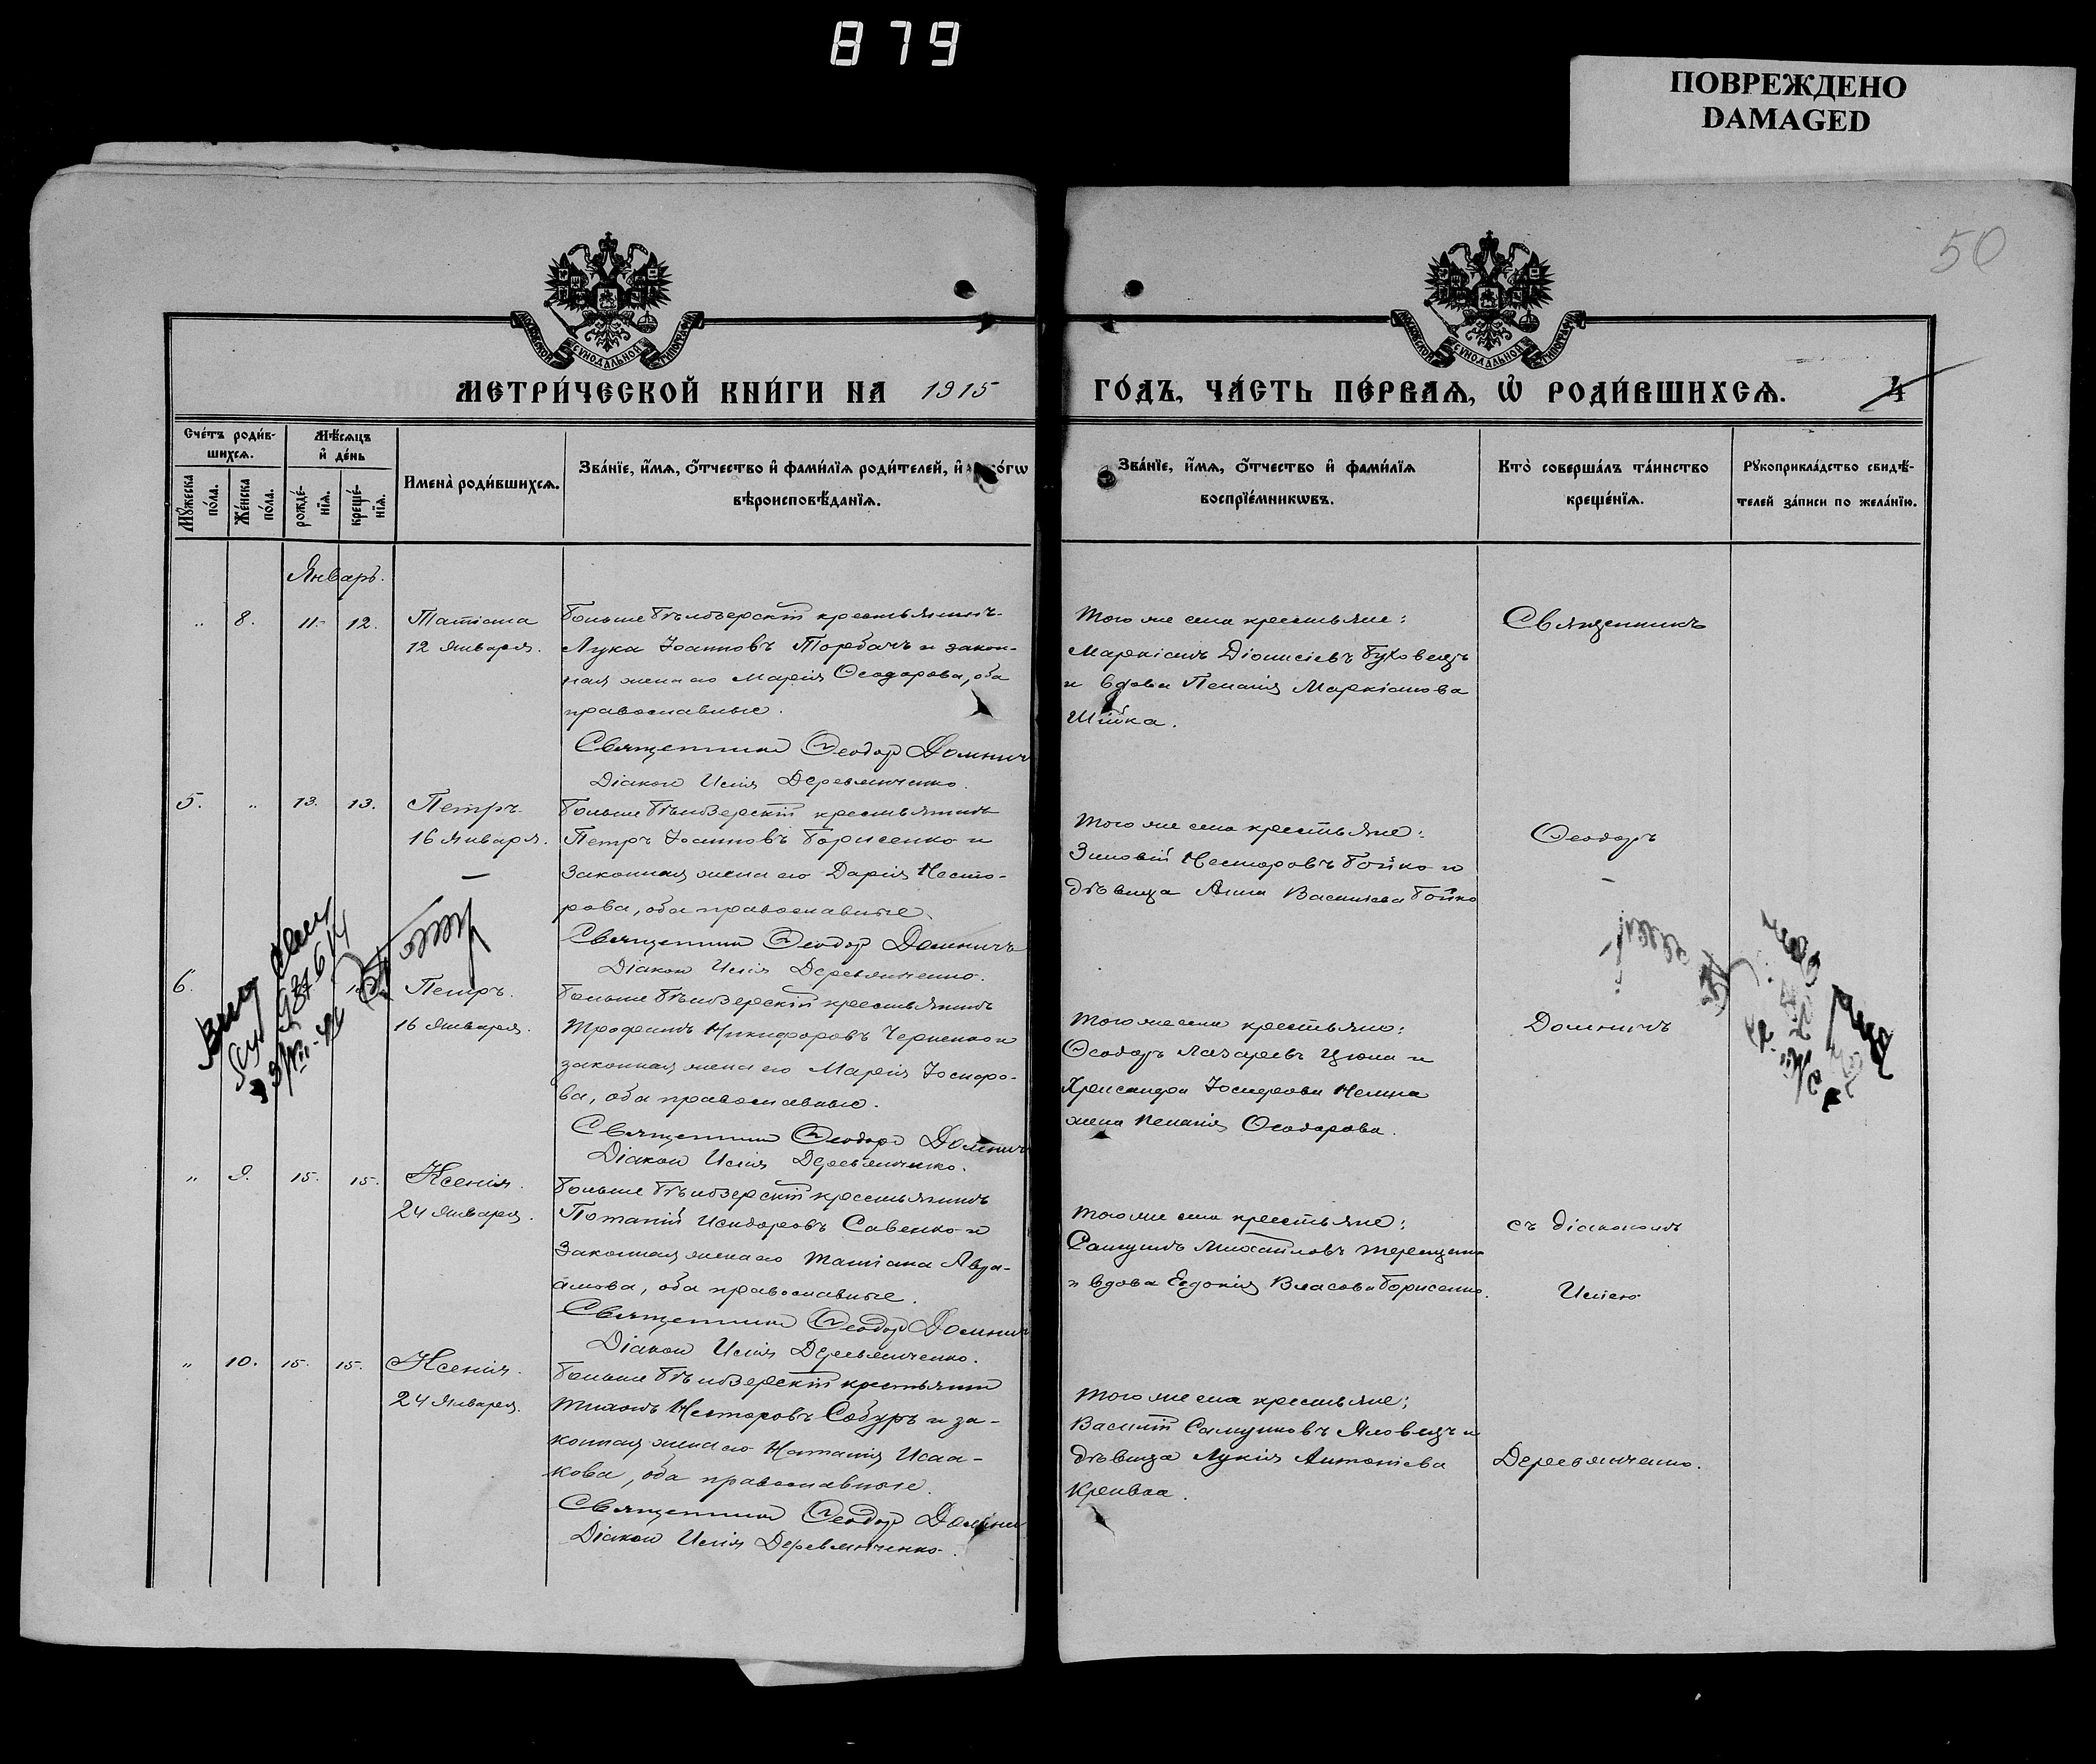 879
ПОВРЕЖДЕНО
DAMAGED
50
МОСКОВСКОЙ СѴНОДАЛЬНОЙ ТИПОГРАФІИ
МОСКОВСКОЙ СѴНОДАЛЬНОЙ ТИПОГРАФІИ
МЕТРИ́ЧЕСКОЙ КНИ́ГИ НА 1915
ГО́ДЪ, ЧА́СТЬ ПЕ́РВАѦ, Ѡ҆ РОДИ́ВШИХСѦ. 4
Сче́тъ роди́в-
шихсѧ.
Мꙋ́жеска по́ла.
Же́нска по́ла.
Мѣ́сѧцъ
и҆ де́нь
рожде́-
нїѧ.
креще́-
нїѧ.
И҆мена̀ роди́вшихсѧ.
Зва́нїе, и҆́мѧ, ѻ҆́тчество и҆ фами́лїѧ роди́телей, и҆
вѣроисповѣ́данїѧ.
Зва́нїе, и҆́мѧ, ѻ҆́тчество и҆ фами́лїѧ
воспрїе́мникѡвъ.
Кто̀ соверша́лъ та́инство
креще́нїѧ.
Рꙋкоприкла́дство свидѣ́-
телей за́писи по жела́нїю.
Январь.
„ 8. 11. 12. Татіана
12 января.
Больше Бѣлозерскій крестьянинъ
Лука Іоанновъ Торбачъ и закон-
ная жена его Марія Ѳеодорова, оба
православные.
Священникъ Ѳеодоръ Домничъ
Діаконъ Илія Деревянченко.
Того же села крестьяне:
Маркіанъ Діонисіевъ Буховецъ
и вдова Пелагія Маркіанова
Шійка.
Священникъ
5. „ 13. 13. Петръ.
16 января.
Больше Бѣлозерскій крестьянинъ
Петръ Іоанновъ Борисенко и
законная жена его Дарія Несто-
рова, оба православные.
Священникъ Ѳеодоръ Домничъ
Діаконъ Илія Деревянченко.
Того же села крестьяне:
Зиновій Несторовъ Бойко и
дѣвица Анна Василіева Бойко
Ѳеодоръ
6. Петръ.
16 января.
Больше Бѣлозерскій крестьянинъ
Трофимъ Никифоровъ Черненко и
законная жена его Марія Іосифо-
ва, оба православные.
Священникъ Ѳеодоръ Домничъ
Діаконъ Илія Деревянченко.
Того же села крестьяне:
Ѳеодоръ Лазаревъ Цюпа и
Александра Іосифова
жена Пелагія Ѳеодорова.
Домничъ
„ 9. 15. 15. Ксенія.
24 января.
Больше Бѣлозерскій крестьянинъ
Потапій Исидоровъ Савенко и
законная жена его Татіана Авра-
амова, оба православные.
Священникъ Ѳеодоръ Домничъ
Діаконъ Илія Деревянченко.
Того же села крестьяне:
Самуилъ Михаиловъ Терещенко
и вдова Евдокія Власова Борисенко.
съ діакономъ
Иліею
„ 10. 15. 15. Ксенія.
24 января.
Больше Бѣлозерскій крестьянинъ
Тихонъ Несторовъ Собуръ и за-
конная жена его Наталія Исаа-
кова, оба православные.
Священникъ Ѳеодоръ Домнич
Діаконъ Илія Деревянченко.
Того же села крестьяне:
Василій Самуиловъ Яловецъ и
дѣвица Лукія Антоніева
Деревянченко.